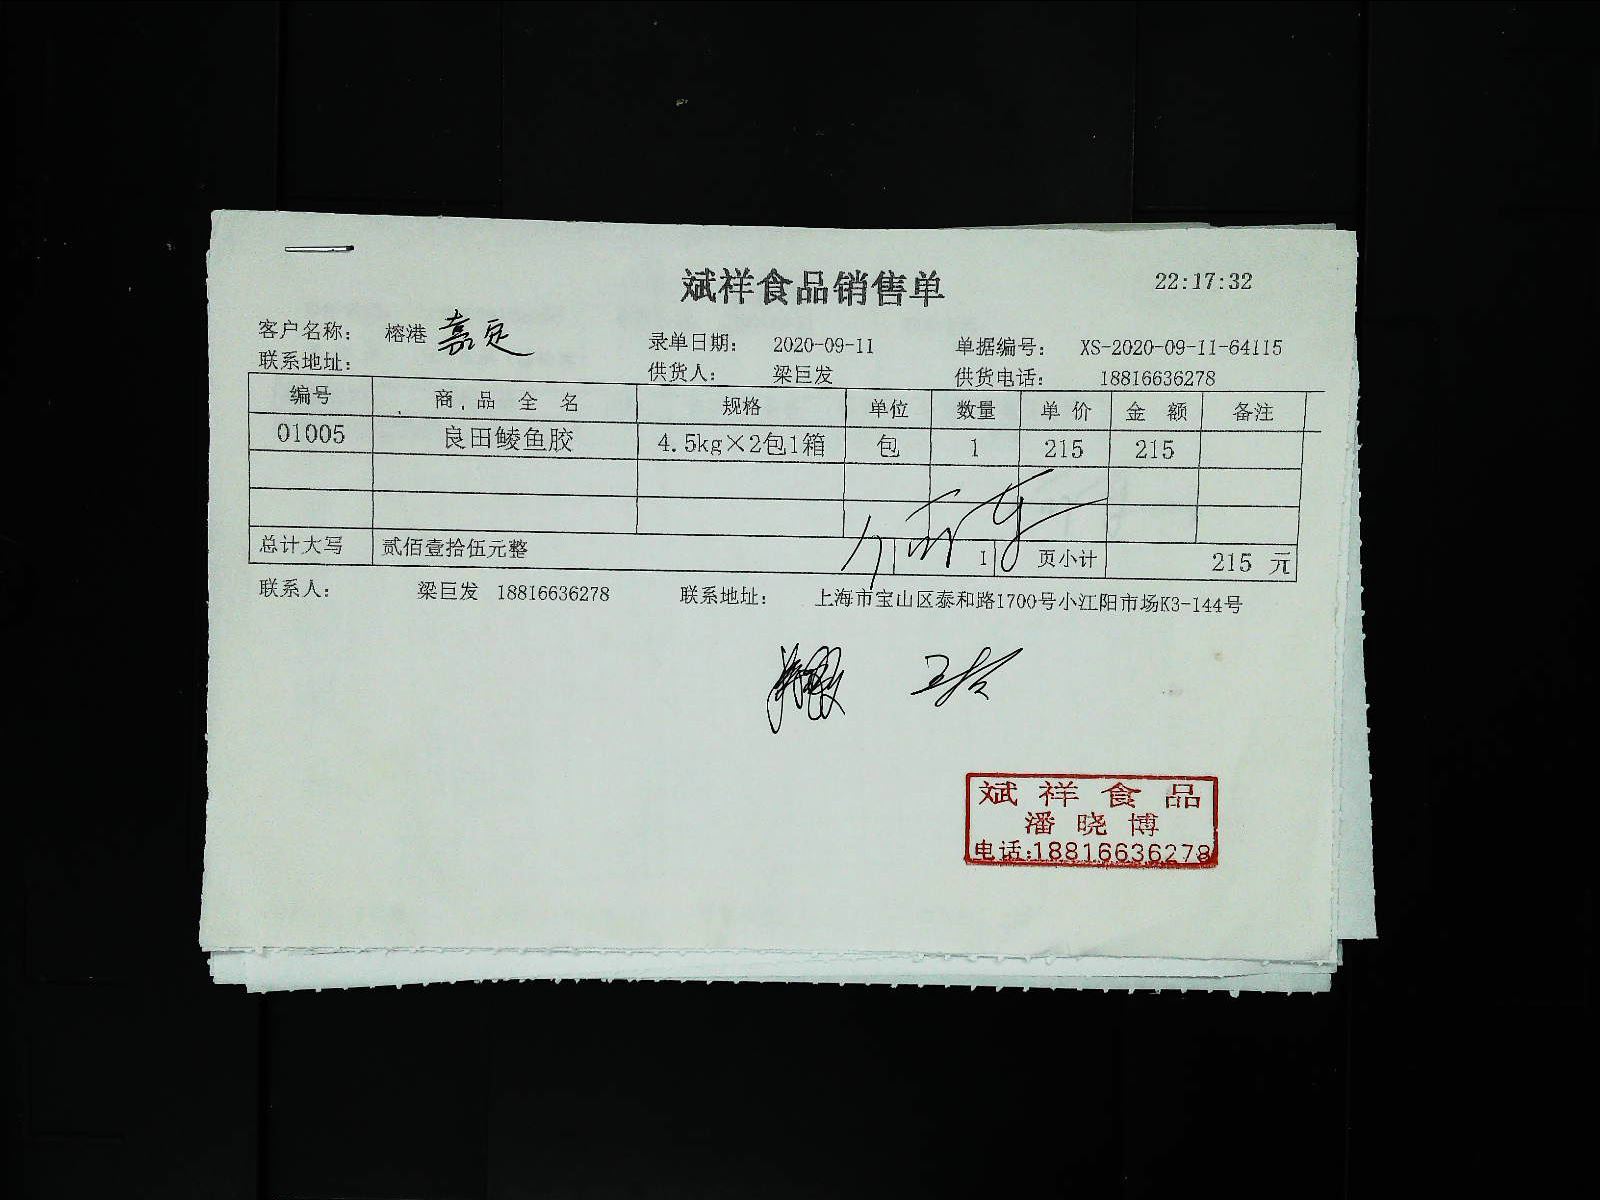 斌祥食品销售单 22:17:32
客户名称： 榕港 嘉定 录单日期： 2020-09-11 单据编号： XS-2020-09-11-64115
联系地址： 供货人： 梁巨发 供货电话： 18816636278
编号 商品全名 规格 单位 数量 单价 金额 备注
01005 良田鲮鱼胶 4.5kg×2包1箱 包 1 215 215
总计大写 贰佰壹拾伍元整 1 页小计 215 元
联系人： 梁巨发 18816636278 联系地址： 上海市宝山区泰和路1700号小江阳市场K3-144号
斌祥食品
潘晓博
电话:18816636278